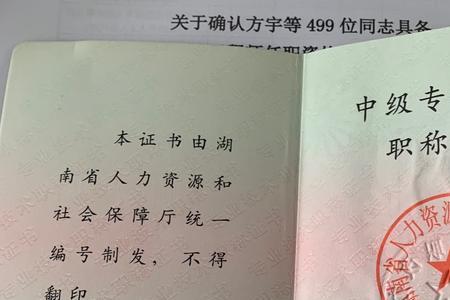 关于确认方宇等 499 位同志具备
程师任职资格
本证书由湖
南省人力资源和
社会保障厅统一
编号制发，不得
翻印
中级专
职称
南省人力资源